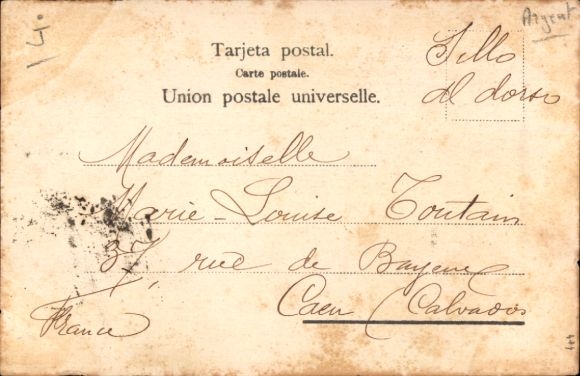 14.
Argent
Tarjeta postal.
Carte postale.
Union postale universelle.
Sello
al dorso
Mademoiselle
Marie-Louise Toutain
37, rue de Bayeux
Caen (Calvados
France